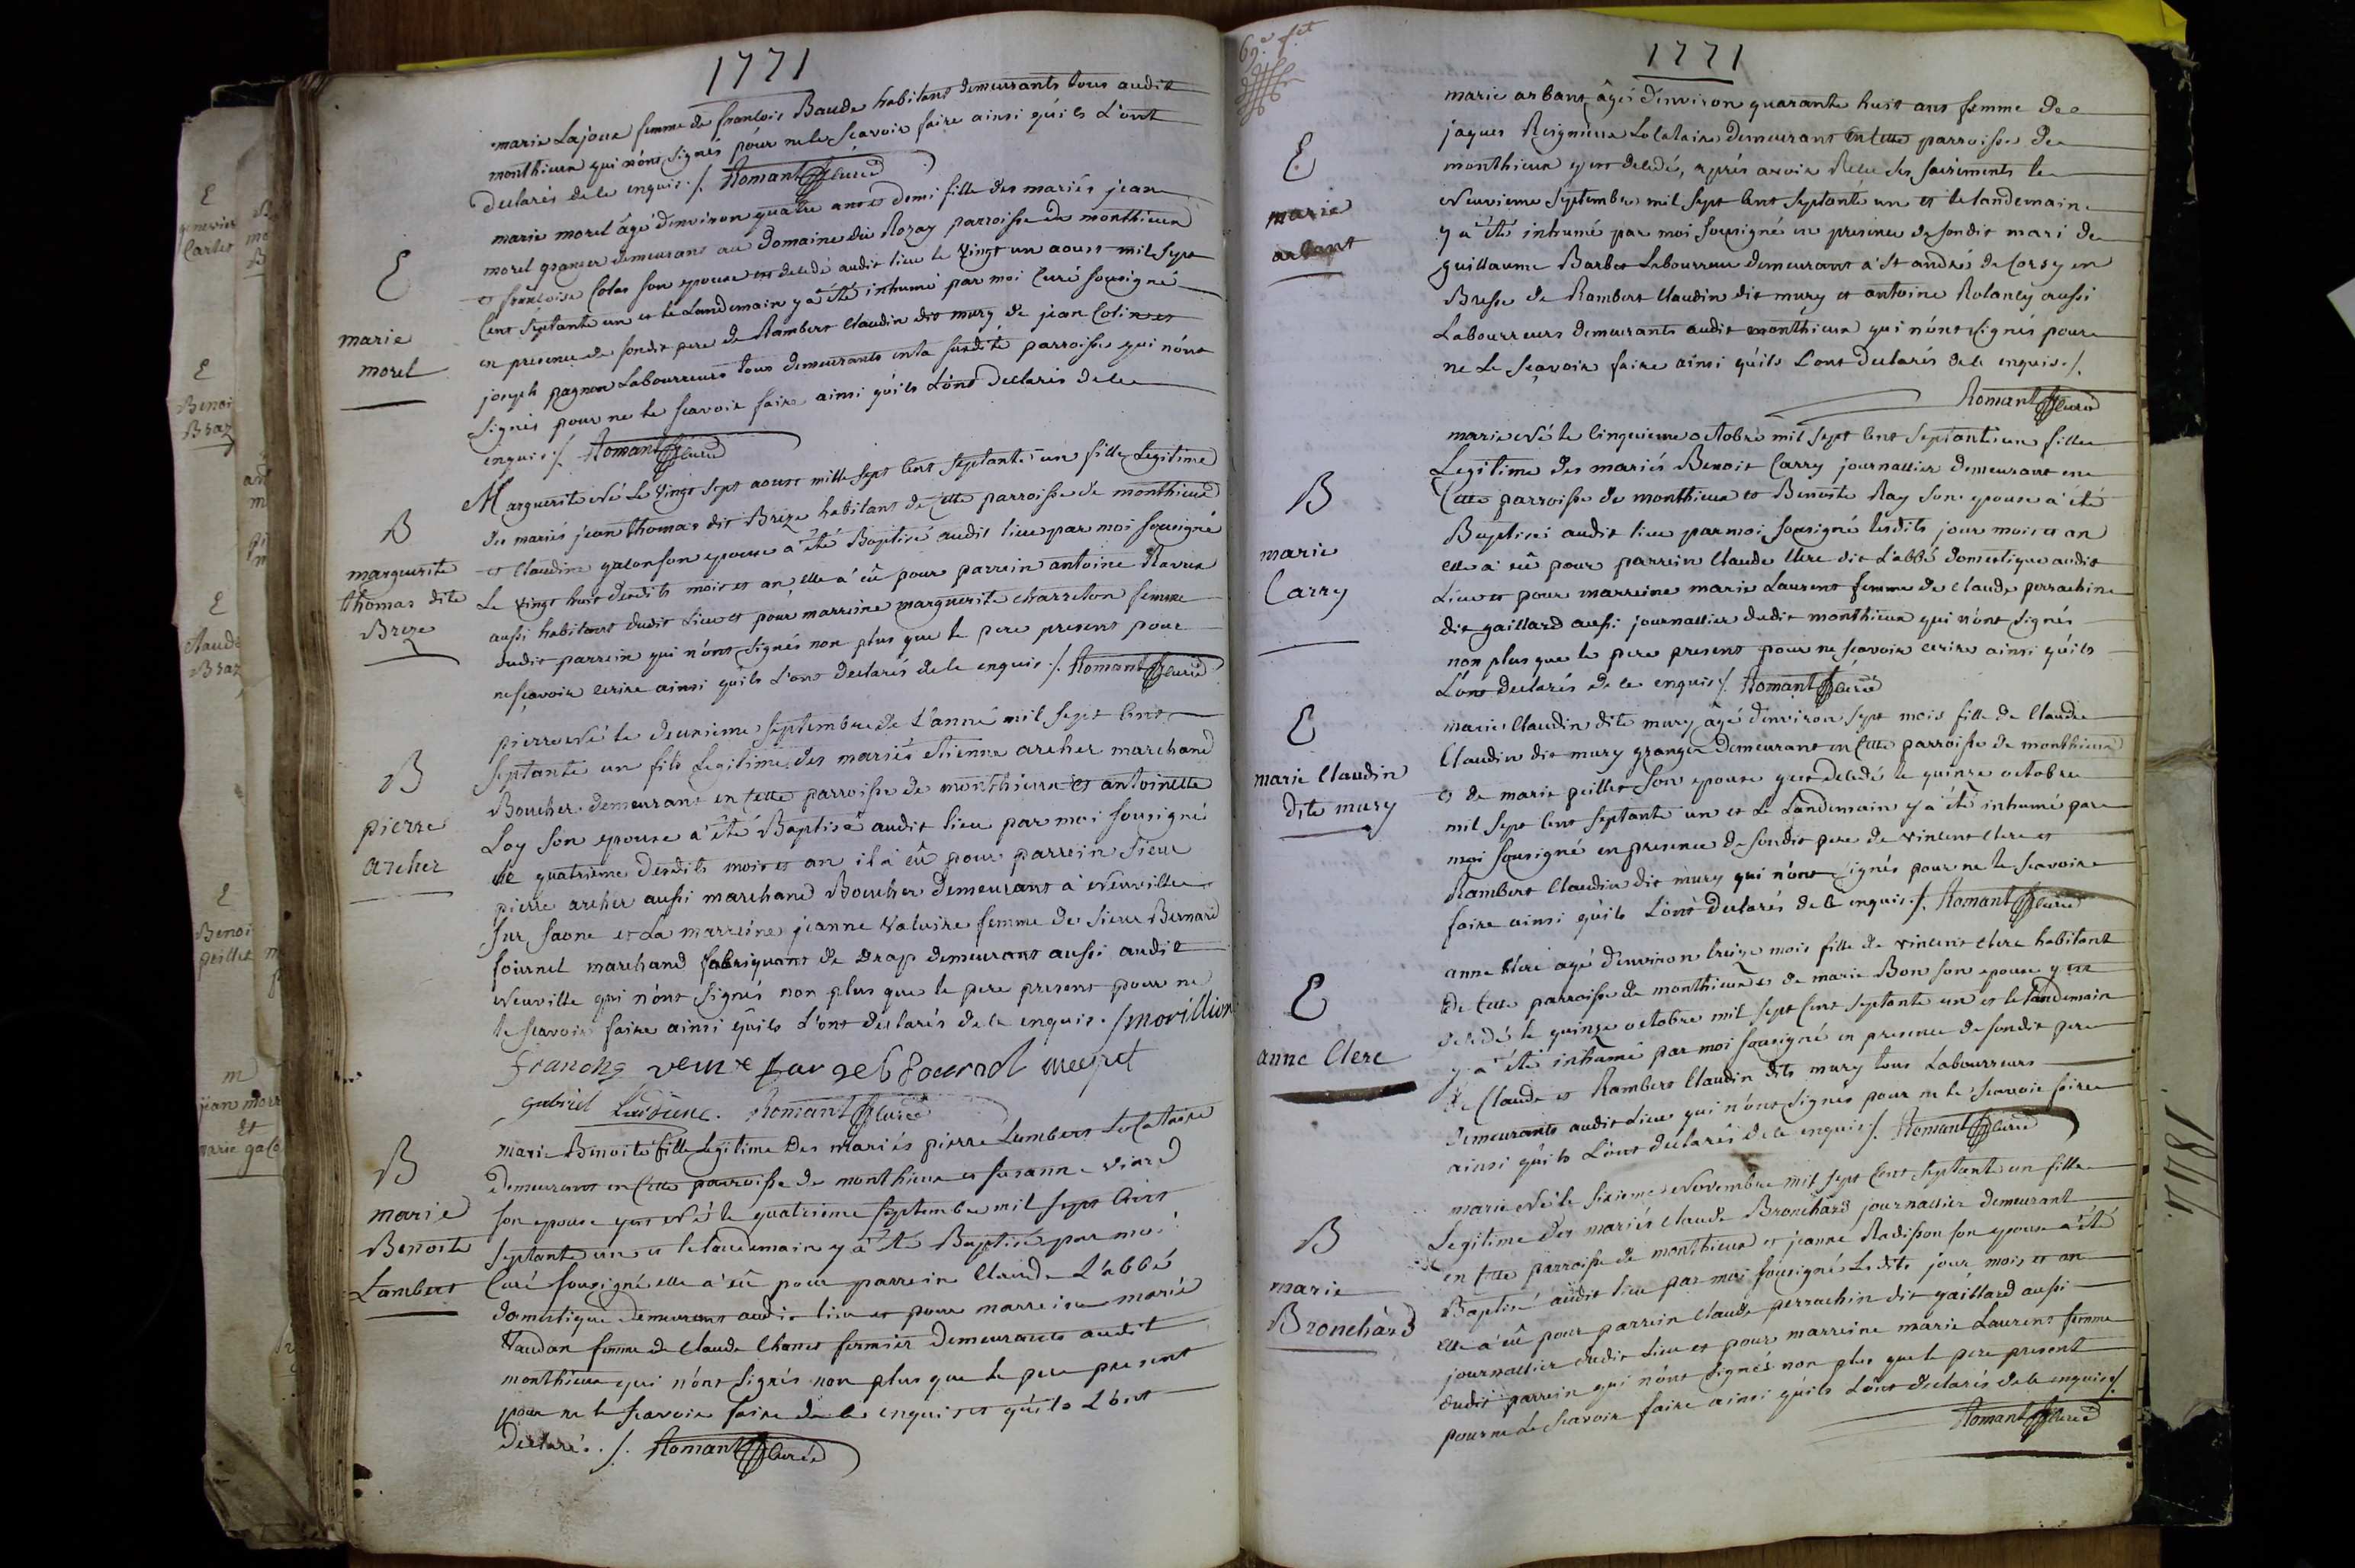 1771
marie Lajoue femme de francois Baude habitant demeurants tous audit
monthieux qui n'ont signés pour ne le scavoir faire ainsi qu'ils L'ont
declarés de ce enquis ./. Romant Curé
E
marie
morel
marie morel âgé d'environ quatre ans et demi fille des mariés jean
morel granger demeurant au Domaine du Rozay parroisse de monthieux
et francoise Colas son epouse est decedé audit lieu le vingt un aoust mil sept
Cent septante un et le Landemain y a été inhumé par moi Curé sousigné
en presence de sondit pere de Rambert Claudin dit mury de jean Colin et
joseph pagnon Labourreurs tous demeurants en la susdite parroisse qui n'ont
signés pour ne le scavoir faire ainsi qu'ils L'ont declarés de ce
enquis ./. Romant Curé
B
marguerite
thomas dite
Breze
Marguerite Né Le vingt sept aoust mille sept Cent septante un fille Legitime
des mariés jean thomas dit Brize habitant de Cette parroisse de monthieux
et Claudine galon son epouse a été Baptisé audit lieu par moi sousigné
Le vingt huit desdits mois et an, elle a eû pour parrein antoine Ravier
aussi habitant dudit Lieu et pour marreine marguerite charreton femme
dudit parrein qui n'ont signés non plus que le pere present pour
ne scavoir ecrire ainsi qu'ils L'ont declarés de ce enquis ./. Romant Curé
B
pierre
archer
pierre Né le deuxieme septembre de L'anné mil sept Cent
septante un fils Legitime des mariés etienne archer marchand
Boucher demeurant en Cette parroisse de monthieux et antoinette
Loy son epouse a été Baptisé audit lieu par moi sousigné
le quatrieme desdits mois et an il a eû pour parrein sieur
pierre archer aussi marchand Boucher demeurant a Neuville
sur saone et La marreine jeanne Valuire femme de sieur Bernard
foirnel marchand fabriquant de drap demeurant aussi audit
Neuville qui n'ont signés non plus que le pere present pour ne
le scavoir faire ainsi qu'ils L'ont declarés de ce enquis ./. movillion
gabriel Romant Curé
B
marie
Benoite
Lambert
marie Benoite fille Legitime des mariés pierre Lambert Locataire
demeurant en Cette parroisse de monthieux et susanne viard
son epouse est Né le quatrieme septembre mil sept Cent
septante un et le Landemain y a été Baptisé par moi
Curé sousigné elle a eû pour parrein Claude L'abbé
domestique demeurant audit lieu et pour marreine marie
Vaudan femme de Claude Chanet fermier demeurants audit
monthieux qui n'ont signés non plus que le pere present
pour ne le scavoir faire de ce enquis et qu'ils L'ont
declaré ./. Romant Curé
1771
E
marie
arbant
marie arbant âgé d'environ quarante huit ans femme de
jaques Reignieux Locataire demeurant en Cette parroisse de
monthieux y est decedé, aprés avoir Recu ses sacrements le
Neuvieme septembre mil sept Cent septante un et le landemain
y a été inhumé par moi sousigné en presence de sondit mari de
guillaume Barbet Labourreur demeurant a st andré de Corsy en
Bresse de Rambert Claudin dit mury et antoine Rolancy aussi
Labourreurs demeurants audit monthieux qui n'ont signés pour
ne Le scavoir faire ainsi qu'ils L'ont declarés de ce enquis ./.
Romant Curé
B
marie
Carry
marie Né le Cinquieme octobre mil sept Cent septante un fille
Legitime des mariés Benoit Carry journallier demeurant en
Cette parroisse de monthieux et Benoite Ray son epouse a été
Baptisé audit lieu par moi sousigné lesdits jour mois et an
elle a eû pour parrein Claude Clere dit L'abbé domestique audit
Lieu et pour marreine marie Laurent femme de Claude perrachin
dit gaillard aussi journallier dudit monthieux qui n'ont signés
non plus que le pere present pour ne scavoir ecrire ainsi qu'ils
L'ont declarés de ce enquis ./. Romant Curé
E
marie Claudin
dite mury
marie Claudin dite mury âgé d'environ sept mois fille de Claude
Claudin dit mury granger demeurant en Cette parroisse de monthieux
et de marie peillet son epouse y est decedé le quinze octobre
mil sept Cent septante un et Le Landemain y a été inhumé par
moi sousigné en presence de sondit pere de vincent Clere et
Rambert Claudin dit mury qui n'ont signés pour ne le scavoir
faire ainsi qu'ils L'ont declarés de ce enquis ./. Romant Curé
E
anne Clere
anne Clere agé d'environ treize mois fille de vincent Clere habitant
de Cette parroisse de monthieux et de marie Bon son epouse y est
decedé le quinze octobre mil sept Cent septante un et le landemain
y a été inhumé par moi sousigné en presence de sondit pere
de Claude et Rambert Claudin dits mury tous Labourreurs
demeurants audit Lieu qui n'ont signés pour ne le scavoir faire
ainsi qu'ils L'ont declarés de ce enquis ./. Romant Curé
B
marie
Bronchard
marie Né le sixieme Novembre mil sept Cent septante un fille
Legitime des mariés Claude Bronchard journallier demeurant
en Cette parroisse de monthieux et jeanne Radisson son epouse a été
Baptisé audit lieu par moi sousigné Lesdits jour mois et an
elle a eû pour parrein Claude perrachin dit gaillard aussi
journallier dudit Lieu et pour marreine marie Laurent femme
dudit parrein qui n'ont signés non plus que le pere present
pour ne Le scavoir faire ainsi qu'ils L'ont declarés de ce enquis ./.
Romant Curé